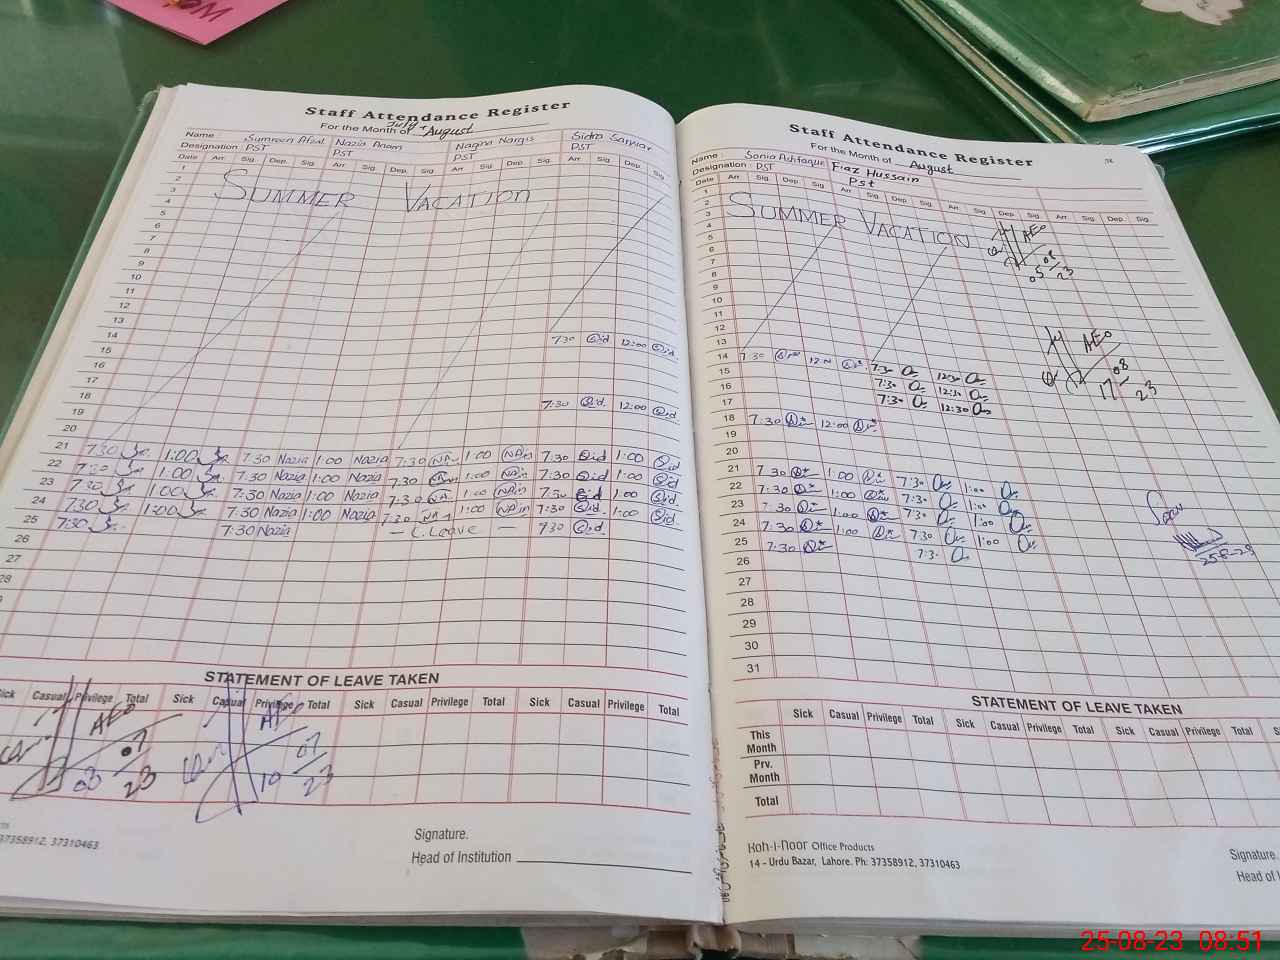 Staff Attendance Register
For the Month of July + August
Name : Sumreen Afzal Nazia Anam Nagina Nargis Sidra Sarwar
Designation : PST PST PST PST
Date Arr. Sig. Dep. Sig. Arr. Sig. Dep. Sig. Arr. Sig. Dep. Sig. Arr. Sig. Dep. Sig.
1
2
3 SUMMER VACATION
4
5
6
7
8
9
10
11
12
13
14 7:30 Sid 12:00 Sid.
15
16
17
18 7:30 Sid. 12:00 Sid
19
20
21 7:30 1:00 7:30 Nazia 1:00 Nazia 7:30 1:00 7:30 Sid 1:00 Sid
22 7:30 1:00 7:30 Nazia 1:00 Nazia 7:30 1:00 7:30 Sid 1:00 Sid
23 7:30 1:00 7:30 Nazia 1:00 Nazia 7:30 1:00 7:30 Sid 1:00 Sid.
24 7:30 1:00 7:30 Nazia 1:00 Nazia 7:30 1:00 7:30 Sid. 1:00 Sid.
25 7:30 7:30 Nazia — C. Leave — 7:30 Sid.
26
27
28
STATEMENT OF LEAVE TAKEN
Sick Casual Privilege Total Sick Casual Privilege Total Sick Casual Privilege Total Sick Casual Privilege Total
AEO AEO
03 07 23 10 07 23
37358912, 37310463
Signature.
Head of Institution
Staff Attendance Register
For the Month of August
Name : Sonia Ashfaque Fiaz Hussain
Designation : PST Pst
Date Arr. Sig. Dep. Sig. Arr. Sig. Dep. Sig. Arr. Sig. Dep. Sig. Arr. Sig. Dep. Sig.
1
2
3 SUMMER VACATION
4 AEO
5 05 08 23
6
7
8
9
10
11
12
13 AEO
14 7:30 12:00
15 7:30 12:30 17 08 23
16 7:30 12:30
17 7:30 12:30
18 7:30 12:00
19
20
21 7:30 1:00 7:30 1:00
22 7:30 1:00 7:30 1:00
23 7:30 1:00 7:30 1:00
24 7:30 1:00 7:30 1:00
25 7:30 7:30
26
25-8-23
27
28
29
30
31
STATEMENT OF LEAVE TAKEN
Sick Casual Privilege Total Sick Casual Privilege Total Sick Casual Privilege Total
This Month
Prv. Month
Total
Koh-I-Noor Office Products
14 - Urdu Bazar, Lahore. Ph: 37358912, 37310463
Signature.
Head of
25-08-23 08:51